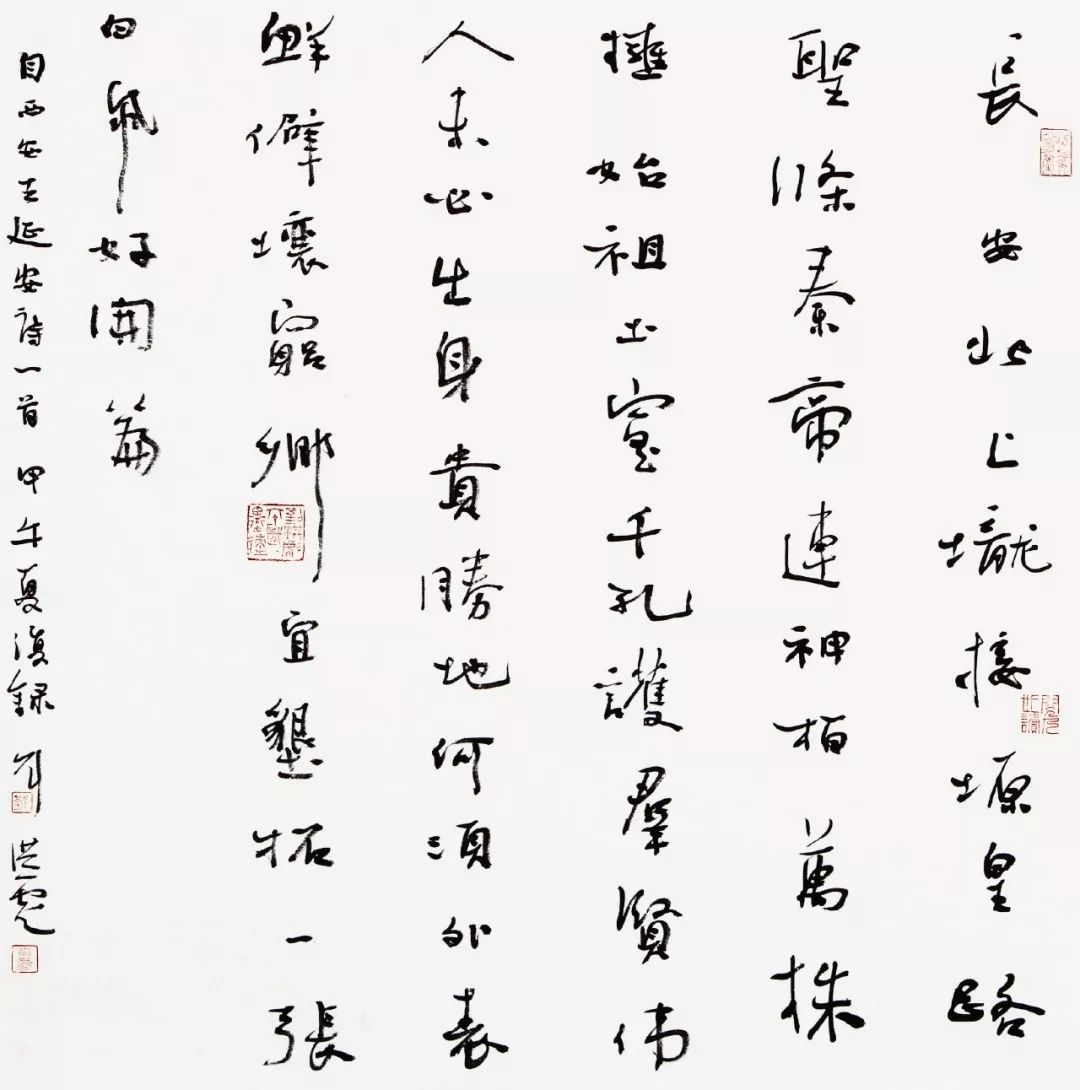 長安北上壠接塬皇路
聖條秦帝連神柏萬株
擁始祖土窰千孔護羣賢伟
人未必出身貴勝地何須外表
鮮僻壤竆鄉宜墾拓一張
白紙好開篇
自西安去延安詩一首 甲午夏復録 劉洪彪